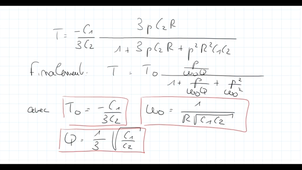 T = -C1/3C2 · 3pC2R/(1 + 3pC2R + p²R²C1C2)
Finalement T = T0 (p/ω0Q)/(1 + p/ω0Q + p²/ω0²)
avec T0 = -C1/3C2 ω0 = 1/(R√(C1C2))
Q = 1/3 √(C1/C2)